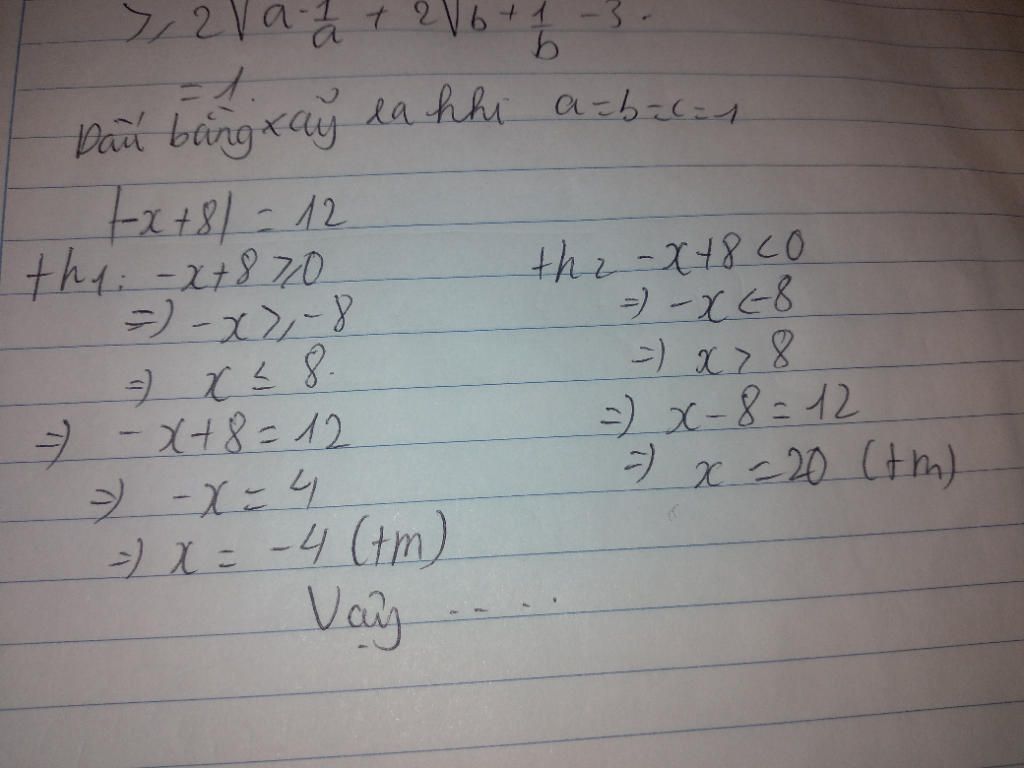 ≥ 2√a·1/a + 2√b+1/b -3.
= 1.
Dấu bằng xảy ra khi a=b=c=1
|-x+8| = 12
th1: -x+8≥0
=> -x≥-8
=> x ≤ 8.
=> -x+8=12
=> -x=4
=> x= -4 (tm)
th2 -x+8<0
=> -x<-8
=> x>8
=> x-8=12
=> x=20 (tm)
Vậy .....